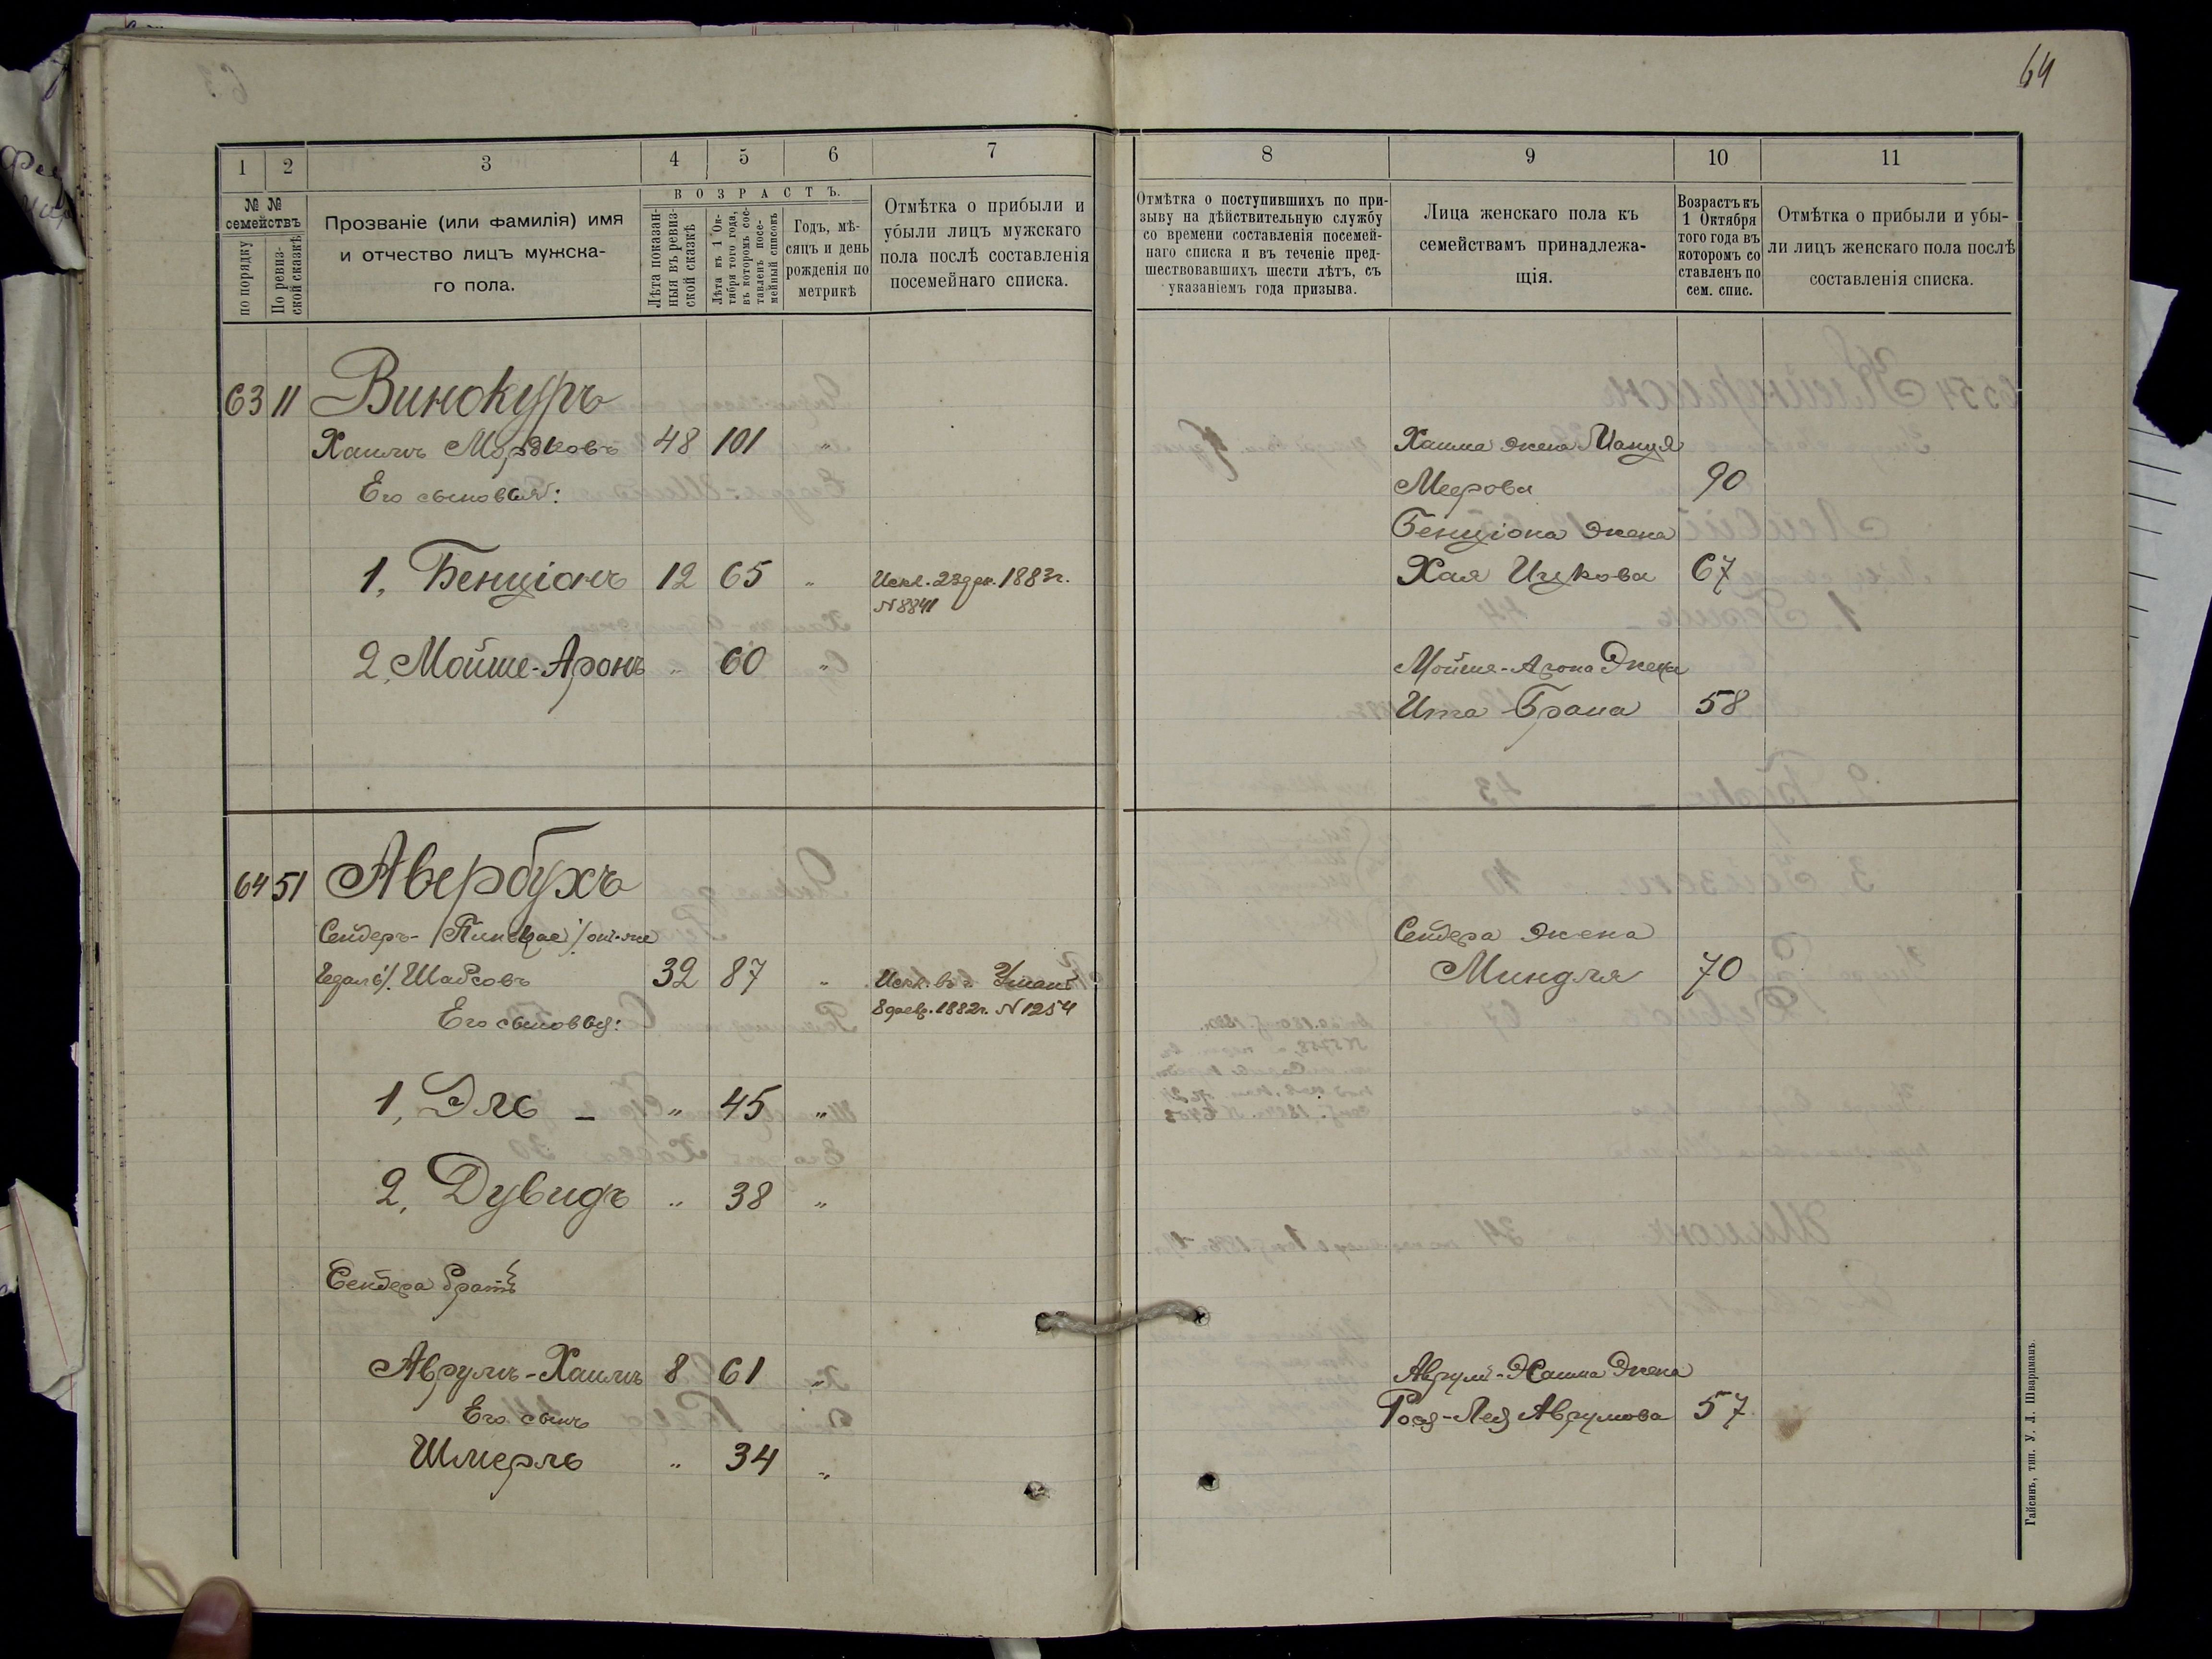 64
1 2 3 4 5 6 7
№ № семействъ
по порядку
По ревизской сказкѣ
Прозваніе (или фамилія) имя
и отчество лицъ мужска-
го пола.
ВОЗРАСТЪ.
Лѣта показан-
ныя въ ревиз-
ской сказкѣ
Лѣта къ 1 Ок-
тября того года,
въ которомъ сос-
тавленъ посе-
мейный списокъ
Годъ, мѣ-
сяцъ и день
рожденія по
метрикѣ
Отмѣтка о прибыли и
убыли лицъ мужскаго
пола послѣ составленія
посемейнаго списка.
63 11 Винокуръ
Хаимъ Морзковъ 48 101 "
Его сыновья:
1, Бенціонъ 12 65 " Искл. 23 дек. 1883г.
N 8841
2, Мойше-Аронъ " 60 "
64 51 Авербухъ
Сендеръ-/Пинхас/онъ-же
Едаль/. Шабсовъ 32 87 " Искл. въ г. Умань
8 февр. 1882г. N 1254
Его сыновья:
1, Эль - " 45 "
2, Дувидъ " 38 "
Сендера братъ
Аврумъ-Хаимъ 8 61 "
Его сынъ
Шмерль " 34 "
8 9 10 11
Отмѣтка о поступившихъ по при-
зыву на дѣйствительную службу
со времени составленія посемей-
наго списка и въ теченіе пред-
шествовавшихъ шести лѣтъ, съ
указаніемъ года призыва.
Лица женскаго пола къ
семействамъ принадлежа-
щія.
Возрастъ къ
1 Октября
того года въ
которомъ со
ставленъ по
сем. спис.
Отмѣтка о прибыли и убы-
ли лицъ женскаго пола послѣ
составленія списка.
Хаима жена Манця
Меерова 90
Бенціона жена
Хая Ицкова 67
Мойше-Арона жена
Ита Брана 58
Сендера жена
Миндля 70
Аврум-Хаима жена
Роза-Лея Аврумова 57
Гайсинъ, тип. У. Л. Шварцманъ.